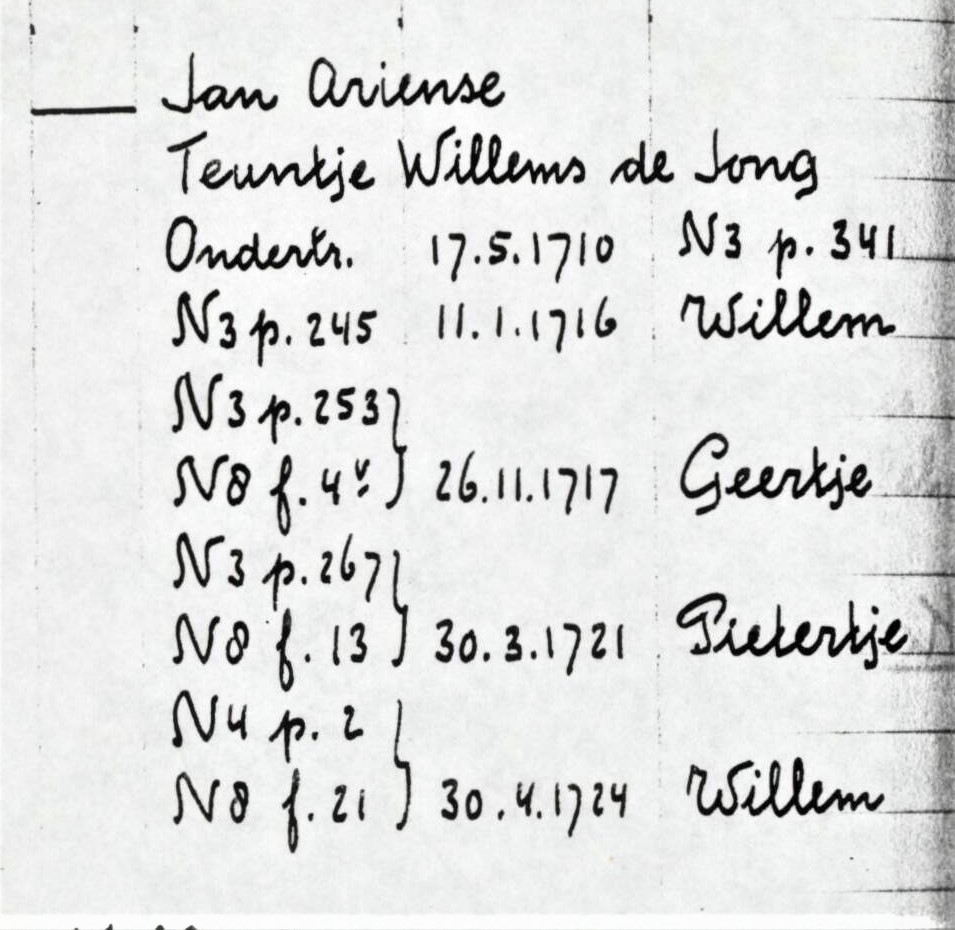 Jan Ariense
Teuntje Willems de Jong
Ondertr. 17.5.1710 N3 p. 341
N3 p. 245 11.1.1716 Willem
N3 p. 253
N8 f. 4v 26.11.1717 Geertje
N3 p. 267
N8 f. 13 30.3.1721 Pietertje
N4 p. 2
N8 f. 21 30.4.1724 Willem